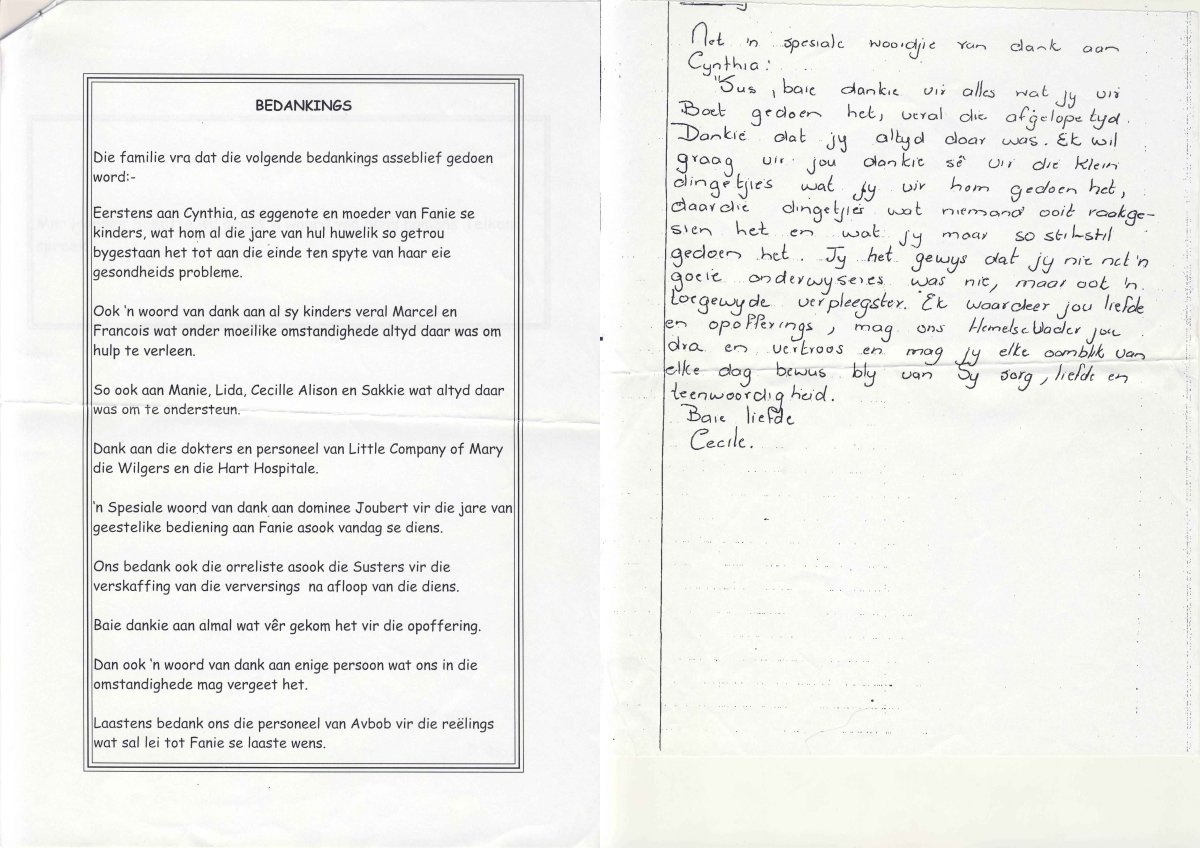 BEDANKINGS
Die familie vra dat die volgende bedankings asseblief gedoen
word:-
Eerstens aan Cynthia, as eggenote en moeder van Fanie se
kinders, wat hom al die jare van hul huwelik so getrou
bygestaan het tot aan die einde ten spyte van haar eie
gesondheids probleme.
Ook 'n woord van dank aan al sy kinders veral Marcel en
Francois wat onder moeilike omstandighede altyd daar was om
hulp te verleen.
So ook aan Manie, Lida, Cecille Alison en Sakkie wat altyd daar
was om te ondersteun.
Dank aan die dokters en personeel van Little Company of Mary
die Wilgers en die Hart Hospitale.
'n Spesiale woord van dank aan dominee Joubert vir die jare van
geestelike bediening aan Fanie asook vandag se diens.
Ons bedank ook die orreliste asook die Susters vir die
verskaffing van die verversings na afloop van die diens.
Baie dankie aan almal wat vêr gekom het vir die opoffering.
Dan ook 'n woord van dank aan enige persoon wat ons in die
omstandighede mag vergeet het.
Laastens bedank ons die personeel van Avbob vir die reëlings
wat sal lei tot Fanie se laaste wens.
Net 'n spesiale woordjie van dank aan
Cynthia:
"Sus, baie dankie vir alles wat jy vir
Boet gedoen het, veral die afgelope tyd.
Dankie dat jy altyd daar was. Ek wil
graag vir jou dankie sê vir die klein
dingetjies wat jy vir hom gedoen het,
daardie dingetjies wat niemand ooit raakge-
sien het en wat jy maar so stil-stil
gedoen het. Jy het gewys dat jy nie net 'n
goeie onderwyseres was nie, maar ook 'n
toegewyde verpleegster. Ek waardeer jou liefde
en opofferings, mag ons Hemelse Vader jou
dra en vertroos en mag jy elke oomblik van
elke dag bewus bly van Sy sorg, liefde en
teenwoordigheid.
Baie liefde
Cecile.